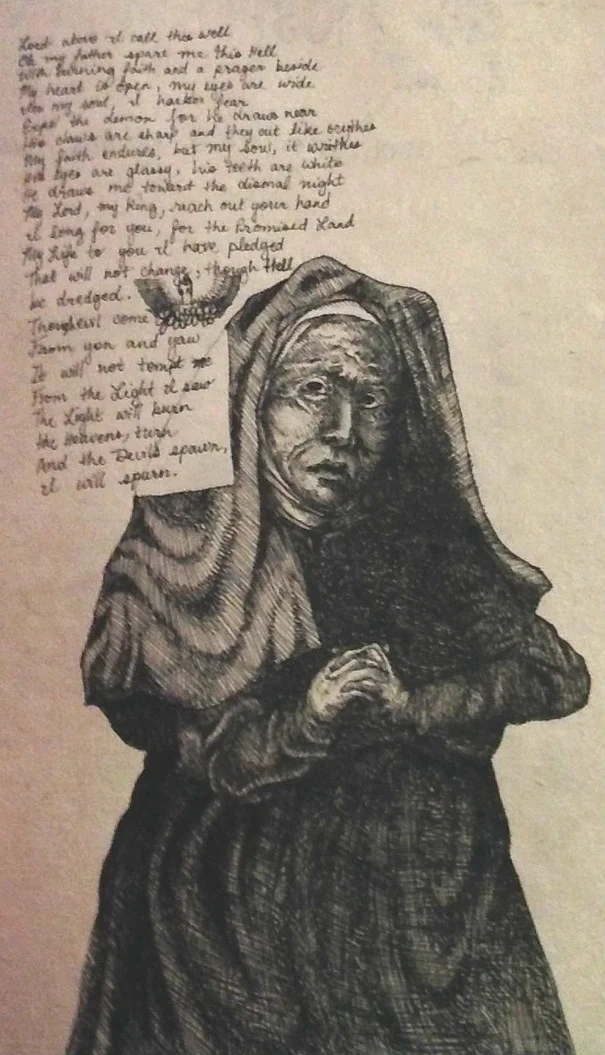 Lord above I call thee well
Oh my father spare me this Hell
With burning faith and a prayer beside
My heart is open, my eyes are wide
my soul, I harbor fear
the demon for he draws near
His claws are sharp and they cut like scythes
My faith endures, but my soul, it writhes
His eyes are glassy, his teeth are white
He draws me toward the dismal night
My Lord, my King, reach out your hand
I long for you, for the Promised Land
My Life to you I have pledged
That will not change, though Hell
be dredged.
come
From yon and yaw
It will not tempt me
From the Light I saw
The Light will burn
the Heavens, turn
And the Devils spawn,
I will spurn.